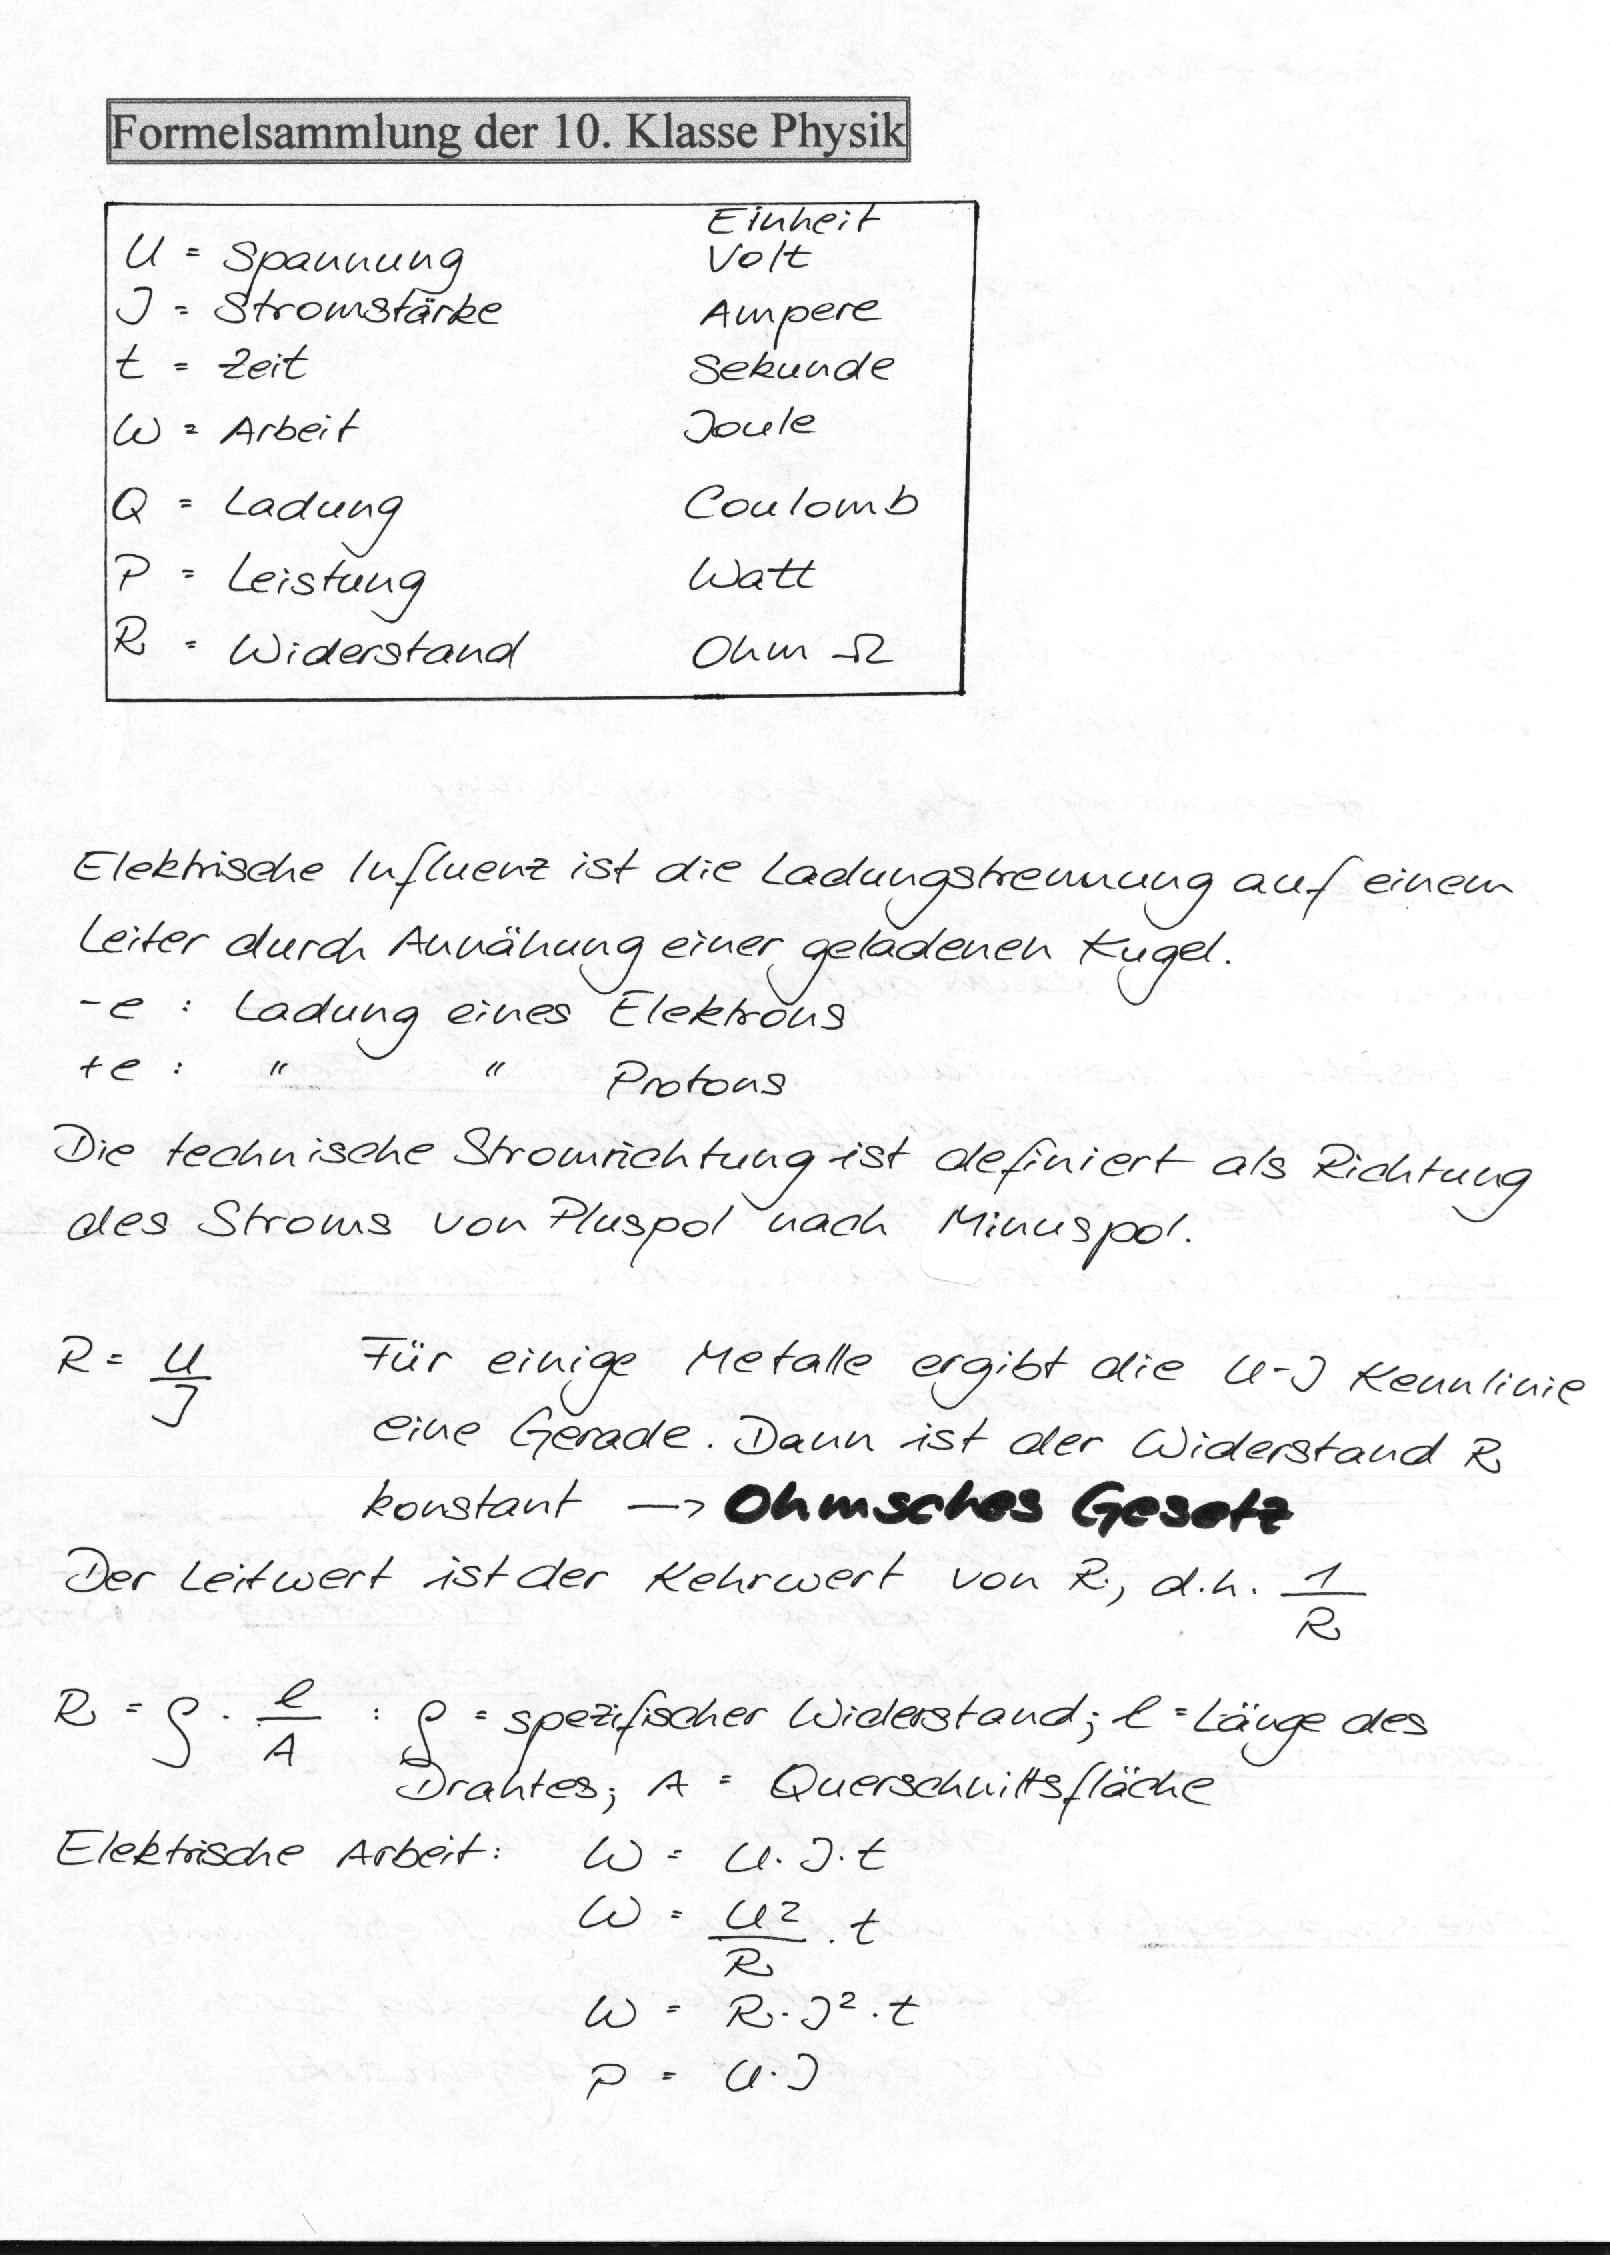 Formelsammlung der 10. Klasse Physik
Einheit
U = Spannung Volt
J = Stromstärke Ampere
t = Zeit Sekunde
W = Arbeit Joule
Q = Ladung Coulomb
P = Leistung Watt
R = Widerstand Ohm Ω
Elektrische Influenz ist die Ladungstrennung auf einem
Leiter durch Annähung einer geladenen Kugel.
-e : Ladung eines Elektrons
+e : " " Protons
Die technische Stromrichtung ist definiert als Richtung
des Stroms von Pluspol nach Minuspol.
R = U/J Für einige Metalle ergibt die U-J Kennlinie
eine Gerade. Dann ist der Widerstand R
konstant —> Ohmsches Gesetz
Der Leitwert ist der Kehrwert von R, d.h. 1/R
R = ρ · l/A : ρ = spezifischer Widerstand; l = Länge des
Drahtes; A = Querschnittsfläche
Elektrische Arbeit: W = U·J·t
W = U²/R · t
W = R·J²·t
P = U·J